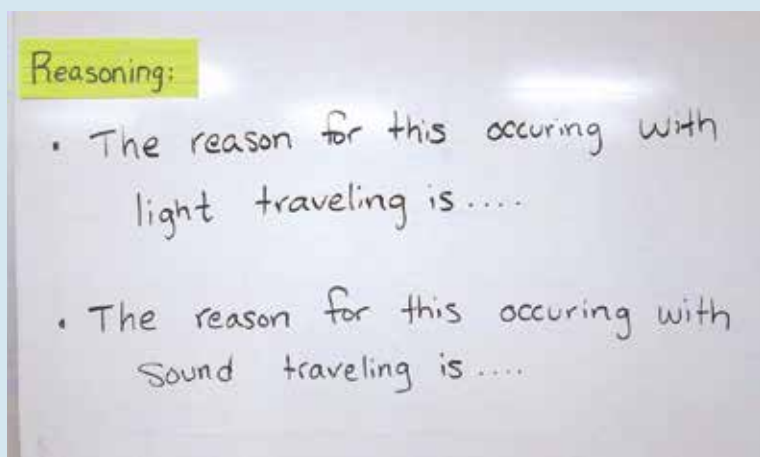 Reasoning:
• The reason for this occuring with
light traveling is ....
• The reason for this occuring with
Sound traveling is ....